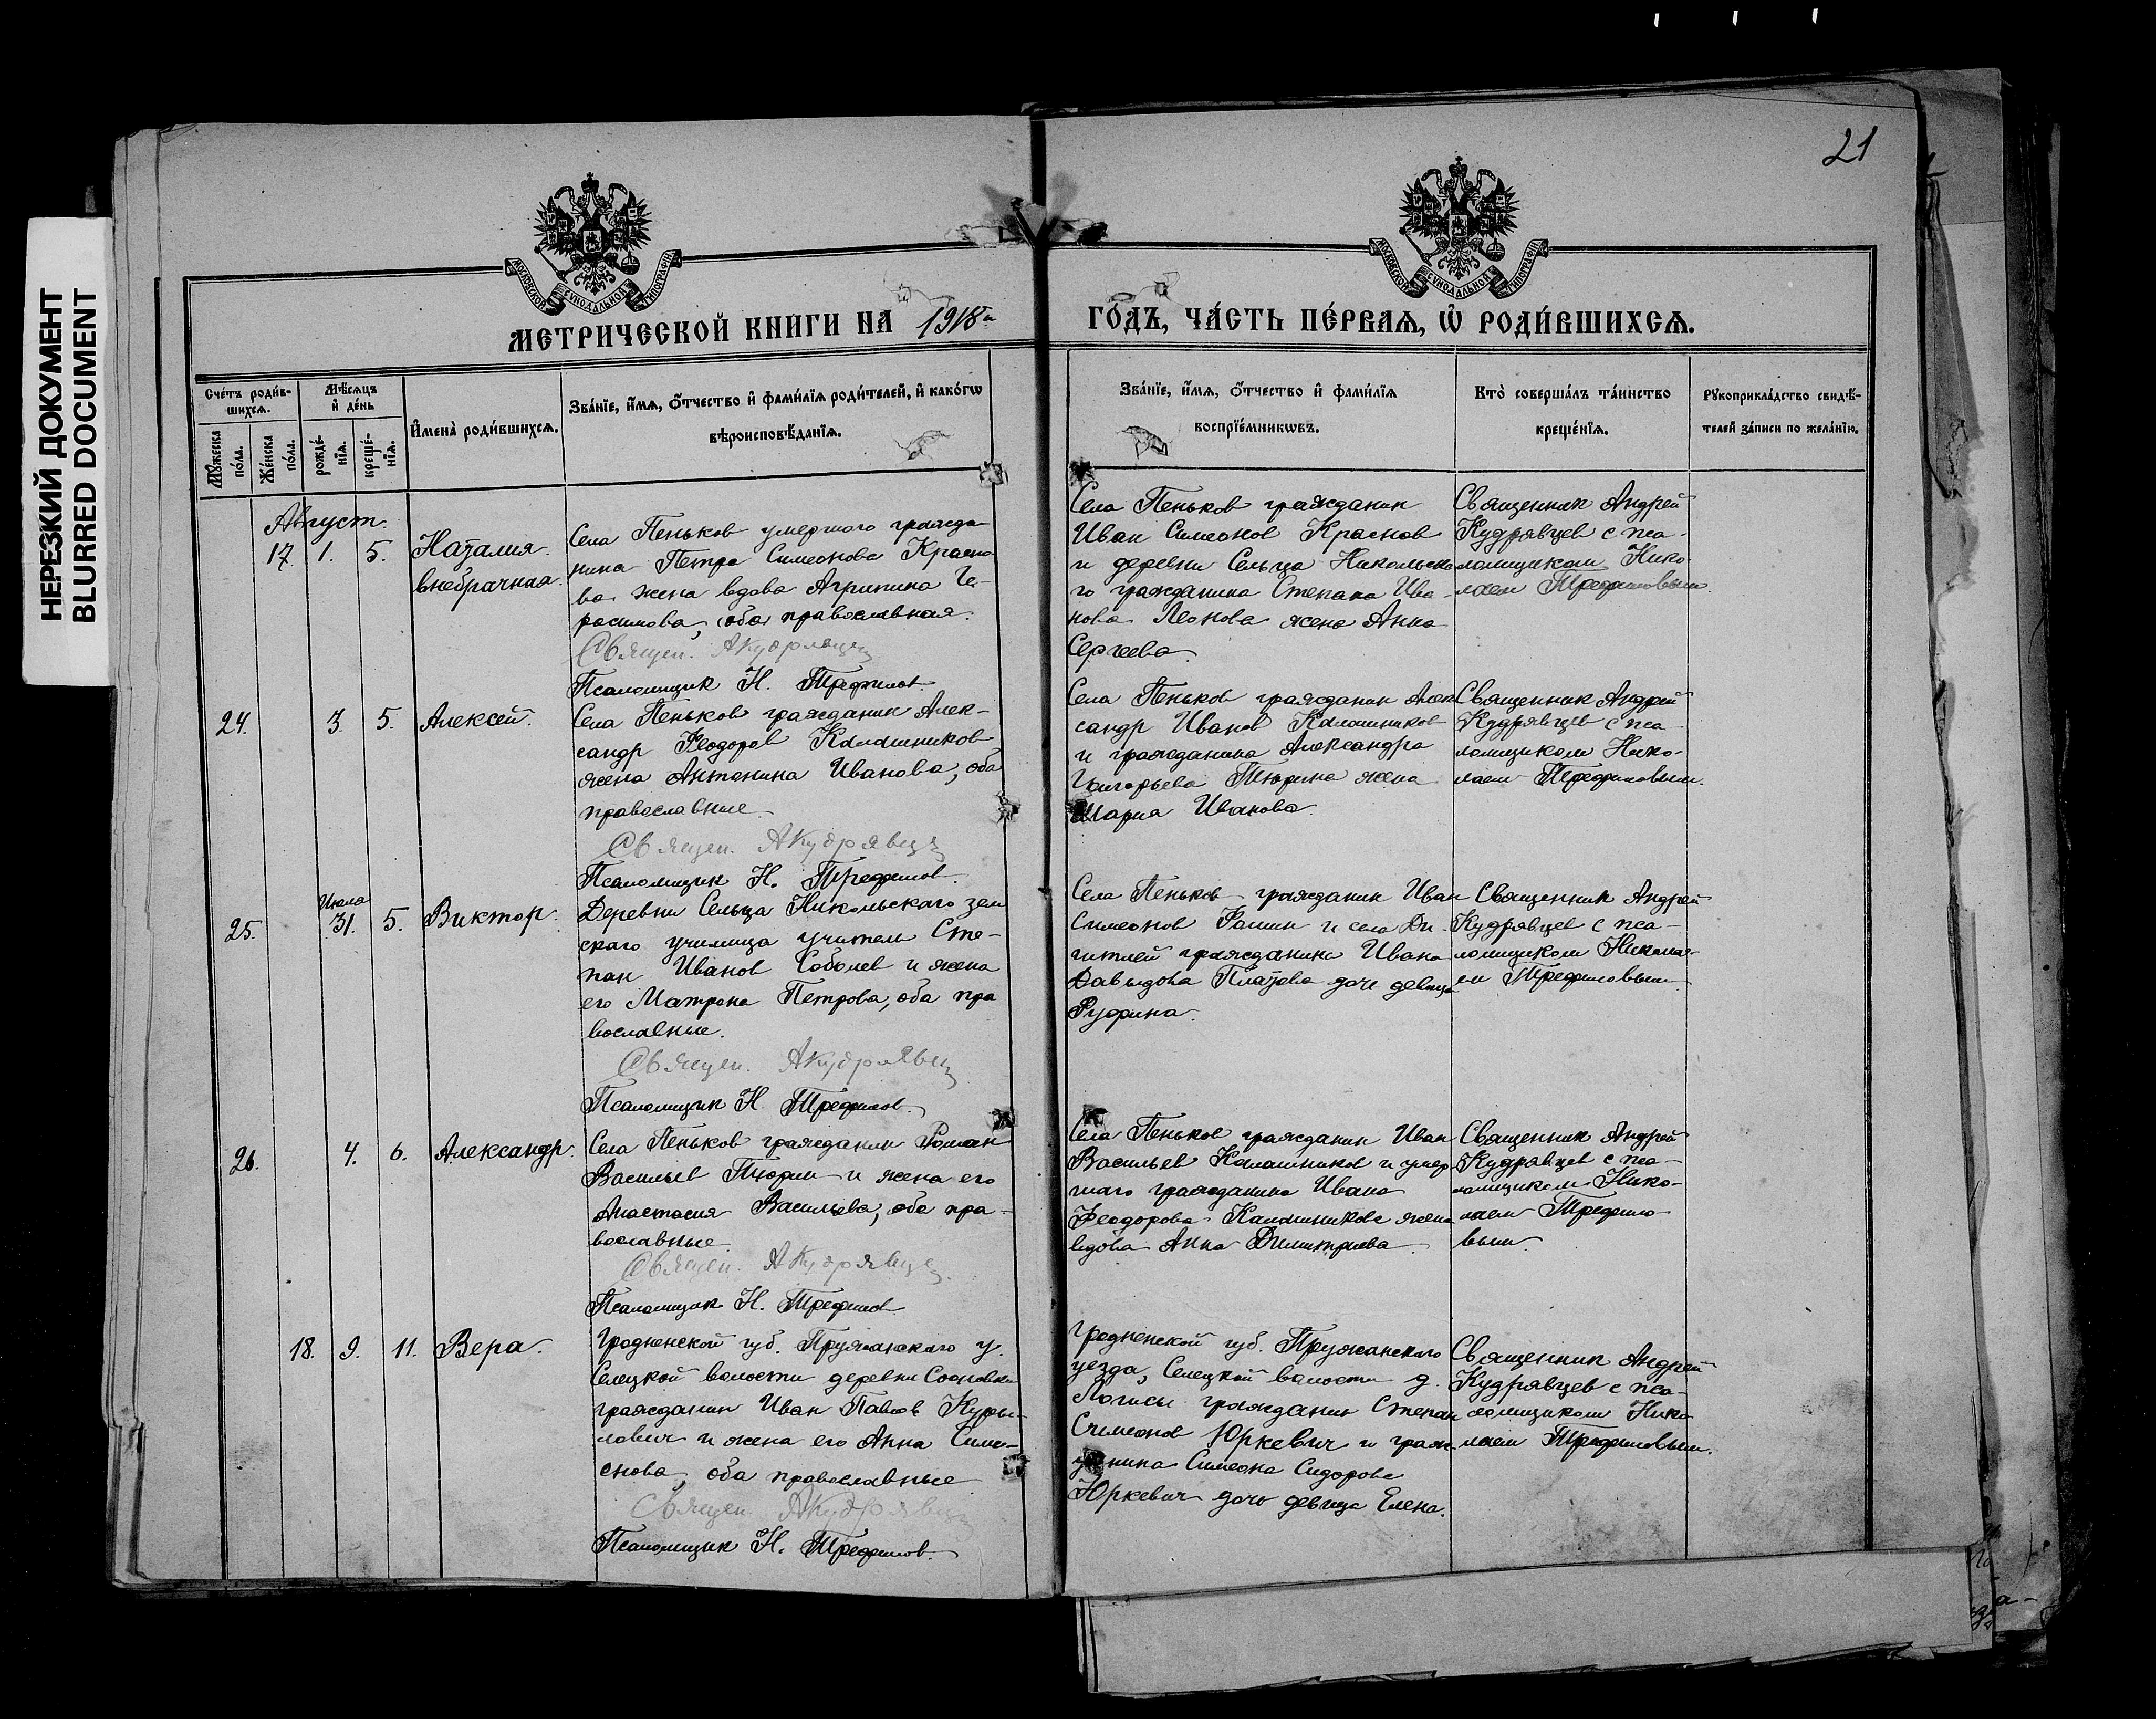 НЕРЕЗКИЙ ДОКУМЕНТ
BLURRED DOCUMENT
21
МОСКОВСКОЙ СѴНОДАЛЬНОЙ ТИПОГРАФІИ
МОСКОВСКОЙ СѴНОДАЛЬНОЙ ТИПОГРАФІИ
МЕТРИЧЕСКОЙ КНИГИ НА 1918 ГО́ДЪ, ЧА́СТЬ ПЕ́РВАЯ, Ѡ҆ РОДИ́ВШИХСЯ.
Сче́тъ роди́в-
шихся.
Мꙋжеска
по́ла.
Же́нска
по́ла.
Мѣ́сяцъ
и҆ де́нь
рожде́-
нїя.
креще́-
нїя.
И҆мена̀ роди́вшихся.
Зва́нїе, и҆́мя, ѻ҆́тчество и҆ фами́лїя роди́телей, и҆ како́гѡ
вѣроисповѣ́данїя.
Зва́нїе, и҆́мя, ѻ҆́тчество и҆ фами́лїя
воспрїе́мникѡвъ.
Кто̀ соверша́лъ та́инство
креще́нїя.
Рꙋкоприкла́дство свидѣ́-
телей за́писи по жела́нїю.
Август.
17. 1. 5.
Наталия
внебрачная.
Села Пеньков умершого гражда
нина Петра Симеонова Красно
ва жена вдова Агрипина Ге-
расимова, оба православная.
Священ. АКудрявцев
Псаломщик Н. Трефилов.
Села Пеньков гражданин
Иван Симеонов Краснов
и деревни Сельца Никольска
го гражданина Степана Ива-
нова Леонова жена Анна
Сергеева.
Священник Андрей
Кудрявцев с пса-
ломщиком Нико-
лаем Трефиловым.
24. 3. 5.
Алексей.
Села Пеньков гражданин Алек-
сандр Феодоров Калашников
жена Антонина Иванова, оба
православные.
Священ. АКудрявцев
Псаломщик Н. Трефилов.
Села Пеньков гражданин Алек
сандр Иванов Калашников
и гражданина Александра
Григорьева Тюрина жена
Мария Иванова.
Священник Андрей
Кудрявцев с пса-
ломщиком Нико-
лаем Трефиловым.
25. Июля 31. 5.
Виктор.
Деревни Сельца Никольскаго зем
скаго училища учитель Сте-
пан Иванов Соболев и жена
его Матрона Петрова, оба пра
вославные.
Священ. АКудрявцев
Псаломщик Н. Трефилов.
Села Пеньков гражданин Иван
Симеонов Фомин и села
гражданина Ивана
Давыдова дочь девица
Руфина.
Священник Андрей
Кудрявцев с пса-
ломщиком Никола-
ем Трефиловым
26. 4. 6.
Александр.
Села Пеньков гражданин Роман
Васильев Тюрин и жена его
Анастасия Васильева, оба пра-
вославные.
Священ. АКудрявцев
Псаломщик Н. Трефилов
Села Пеньков гражданин Иван
Васильев Калашников и умер
шаго гражданина Ивана
Феодорова Калашникова жена
вдова Анна Димитриева.
Священник Андрей
Кудрявцев с пса-
ломщиком Нико-
лаем Трефило-
вым.
18. 9. 11.
Вера.
Гродненской губ. Пружанскаго у.
Селецкой волости деревни Сосновки
гражданин Иван Павлов Куры-
лович и жена его Анна Симе-
онова, оба православные
Священ. АКудрявцев
Псаломщик Н. Трефилов.
Гродненской губ. Пружанскаго
уезда, Селецкой волости д.
гражданин Степан
Симеонов Юркевич и граж-
данина Симеона Сидорова
Юркевич дочь девица Елена.
Священник Андрей
Кудрявцев с пса-
ломщиком Нико
лаем Трефиловым.